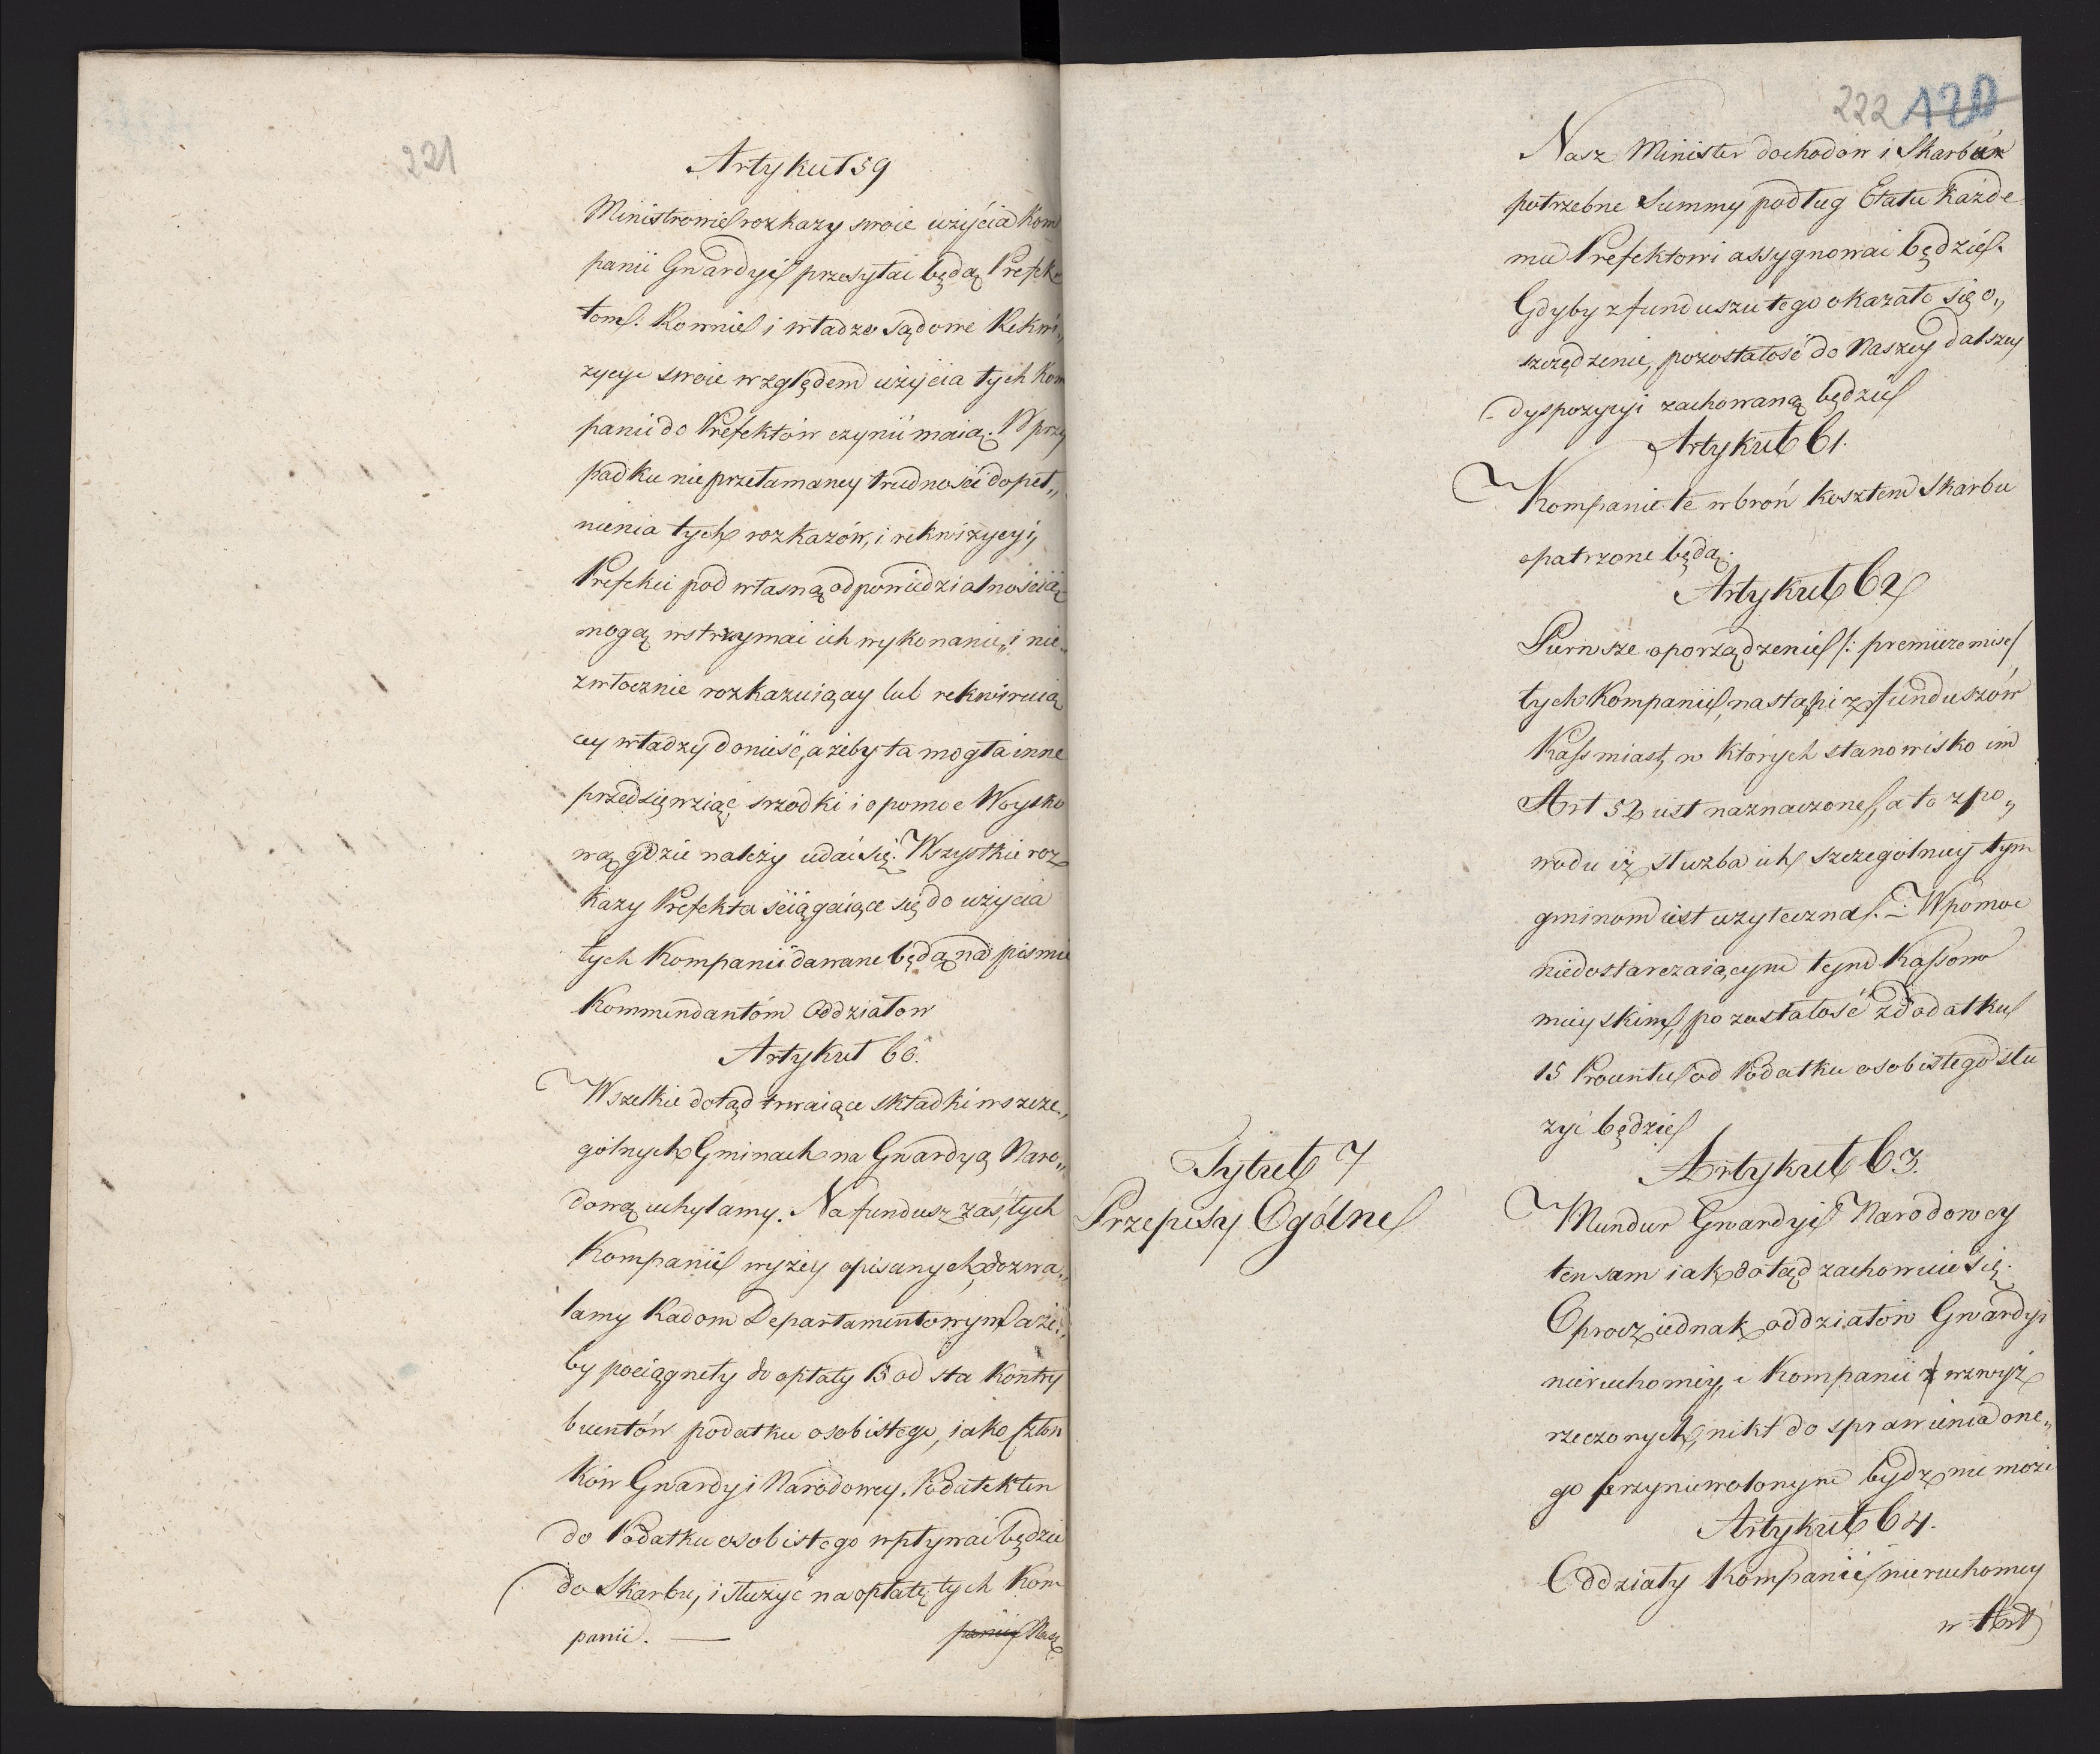 221
Artykuł 59
Ministrowie rozkazy swoie użyćia Kom
panii Gwardyi przesyłać będą Prefek
tom. Rownie i władze Sądowe Rekwi„
zycye swoie względem użyćia tych Kom
panii do Prefektów czynić maią. W przy
padku nieprzełamaney trudności dopeł„
nienia tych rozkazów, i rekwizycyi,
Prefekci pod własną odpowiedzialnością
mogą wstrzymać ich wykonanie, i nie„
zwłocznie rozkazuiącey lub rekwiruią
cey władzy donieść, ażeby ta mogła inne
przedsięwziąć srzodki i o pomoc Woysko
wą gdzie należy udać się. Wszystkie roz
kazy Prefekta ściągaiące się do użycia
tych Kompanii dawane będą na pismie
Kommendantóm Oddziałow
Artykuł 60.
Wszelkie dotąd trwaiące składki w szcze„
gólnych Gminach na Gwardyą Naro„
dową uchylamy. Na fundusz zaś tych
Kompanii wyżey opisanych, dozwa„
lamy Radom Departamentowym aże„
by pociągnęły do opłaty 15 od sta Kontry
buentów podatku osobistego, iako człon
ków Gwardyi Narodowey. Podatek ten
do Podatku osobistego wpływać będzie
do Skarbu, i służyć na opłatę tych Kom
panii. —
panii Nasz
222 120
Nasz Minister dochodów i Skarbu
potrzebne Summy podług Etatu każde
mu Prefektowi assygnować będzie.
Gdyby z funduszu tego okazało się o„
szczędzenie, pozostałość do Naszey dalszey
dyspozycyi zachowaną będzie
Artykuł 61.
Kompanie te w broń kosztem Skarbu
opatrzone będą.
Artykuł 62
Pierwsze oporządzenie /: premiere mise/
tych Kompanii, nastąpi z funduszów
Kass miast, w których stanowisko im
Art 52 iest naznaczone, a to z po„
wodu iż służba ich szczególniey tym
gminom iest użyteczna. – W pomoc
niedostarczaiącym tym Kassom
mieyskim, pozostałość z dodatku
15 Procentu od Podatku osobistego słu
żyć będzie
Tytuł 7
Przepisy Ogólne
Artykuł 63.
Mundur Gwardyi Narodowey
ten sam iak dotąd zachowuie się.
Oprocz iednak oddziałów Gwardyi
nieruchomey, i Kompanii wzwyż
rzeczonych, nikt do sprawienia one„
go przyniewolonym bydz nie może
Artykuł 64.
Oddziały Kompanii nieruchomey
w Art